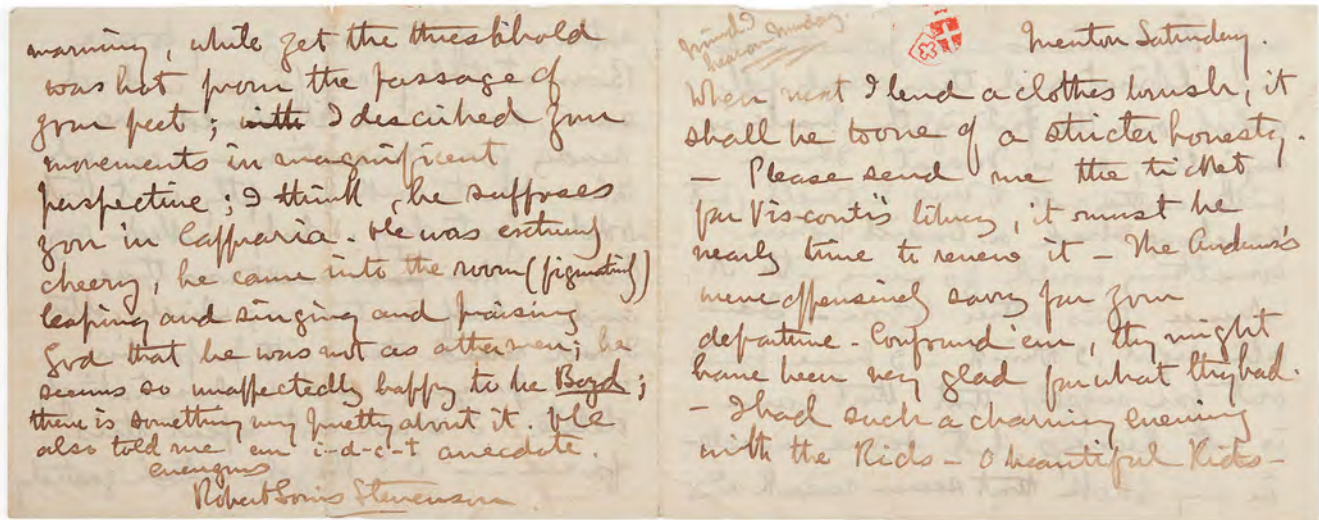 morning, while yet the threshhold
was hot from the passage of
your feet; I described your
movements in magnificent
perspective; I think, he supposes
you in Caffraria. He was extremely
cheery, he came into the room (figuratively)
leaping and singing and praising
God that he was not as other men; he
seems so unaffectedly happy to be Boyd;
there is something very pretty about it. He
also told me an i-d-c-t anecdote.
Robert Louis Stevenson
Mind I
hear on Monday.
Menton Saturday.
When next I lend a clothes brush, it
shall be to one of a stricter honesty.
– Please send me the ticket
for Visconti's library, it must be
nearly time to renew it – The Andrews's
were offensively sorry for your
departure – Confound em, they might
have been very glad for what they had.
– I had such a charming evening
with the Kids – O beautiful Kids –